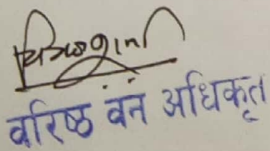 वरिष्ठ वन अधिकृत